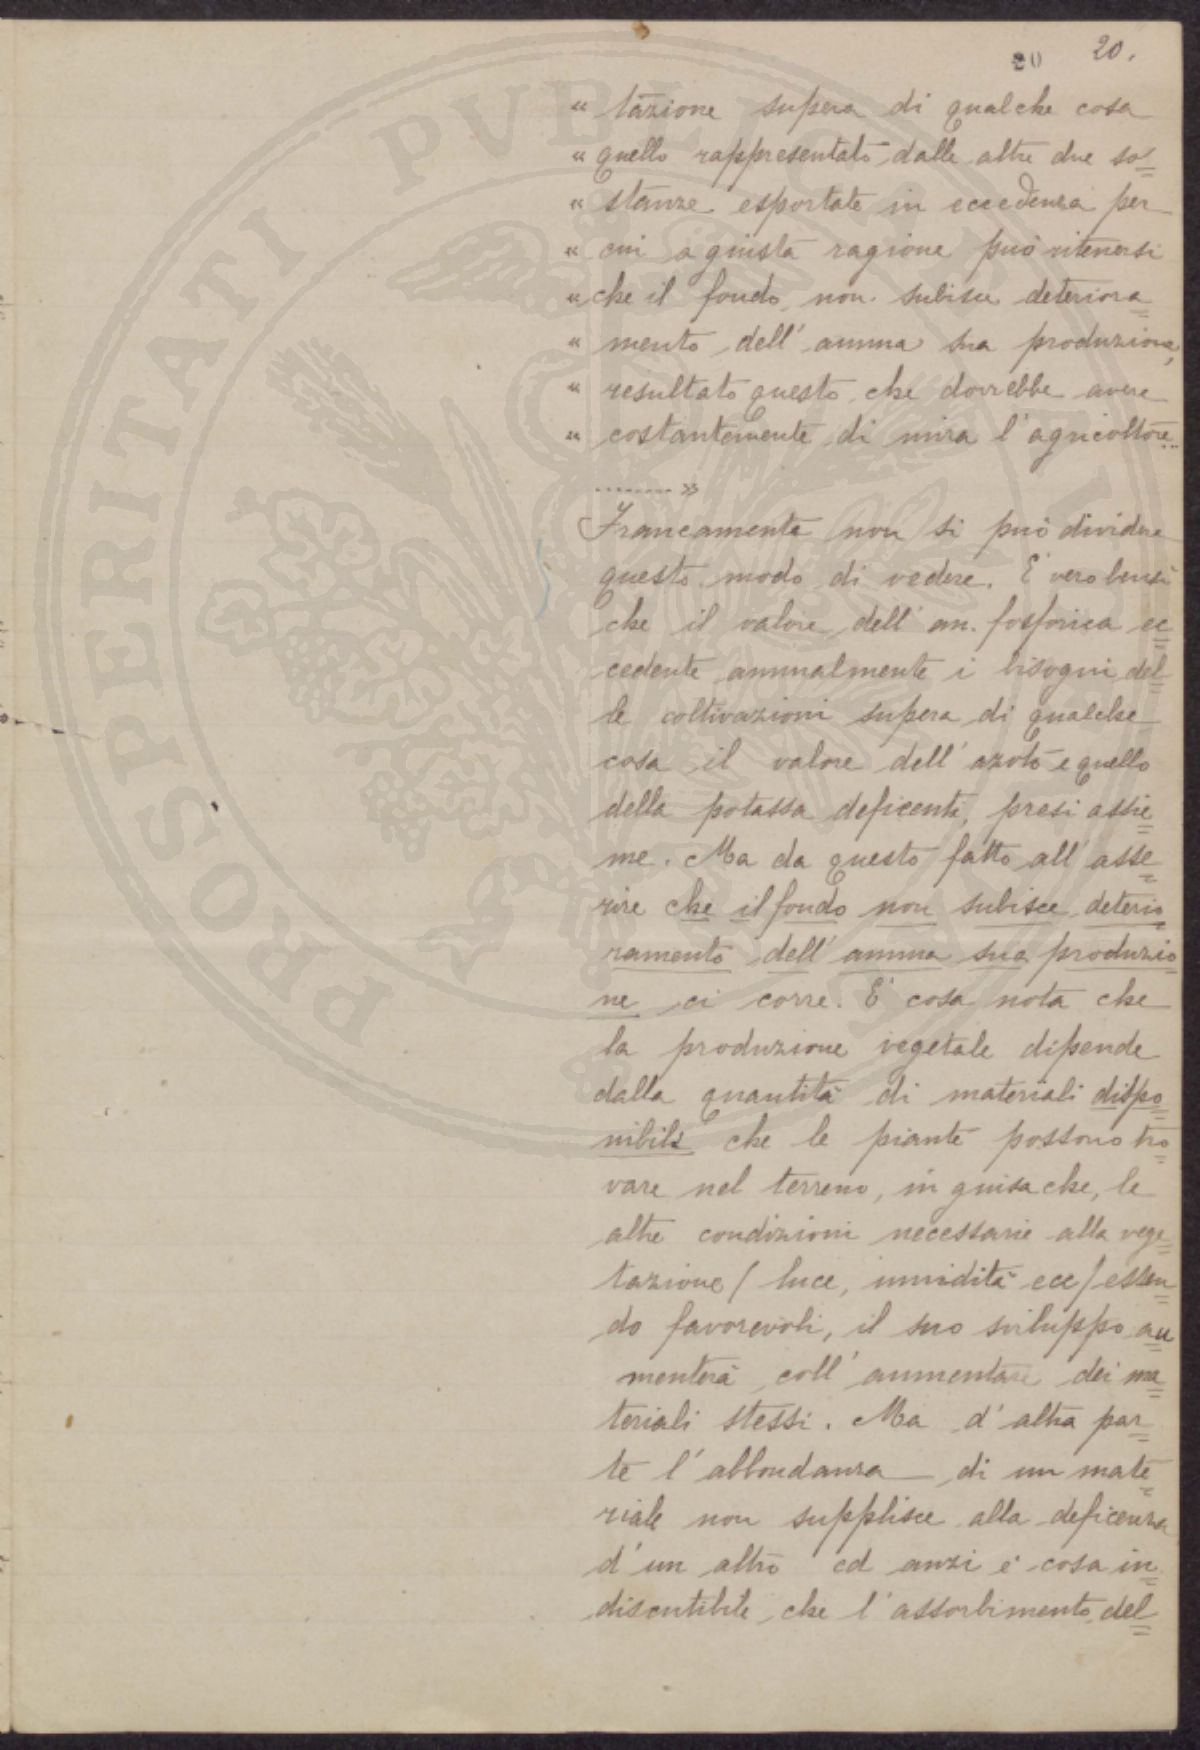 20 20.
“ tazione supera di qualche cosa
“ quello rappresentato dalle altre due so=
“ stanze esportate in eccedenza per
“ cui a giusta ragione può ritenersi
“ che il fondo non subisce deteriora=
“ mento dell'annua sua produzione,
“ resultato questo che dovrebbe avere
“ costantemente di mira l'agricoltore..
........»
Francamente non si può dividere
questo modo di vedere. E' vero bensì
che il valore dell'an. fosforica ec=
cedente annualmente i bisogni del=
le coltivazioni supera di qualche
cosa il valore dell'azoto e quello
della potassa deficenti, presi assie=
me. Ma da questo fatto all'asse=
rire che il fondo non subisce deterio=
ramento dell'annua sua produzio=
ne ci corre. E' cosa nota che
la produzione vegetale dipende
dalla quantità di materiali dispo=
nibili che le piante possono tro=
vare nel terreno, in guisa che, le
altre condizioni necessarie alla vege=
tazione (luce, umidità ecc) essen=
do favorevoli, il suo sviluppo au=
menterà coll'aumentare dei ma=
teriali stessi. Ma d'altra par=
te l'abbondanza di un mate=
riale non supplisce alla deficenza
d'un altro ed anzi è cosa in=
discutibile che l'assorbimento del=
PROSPERITATI PVBLICAE